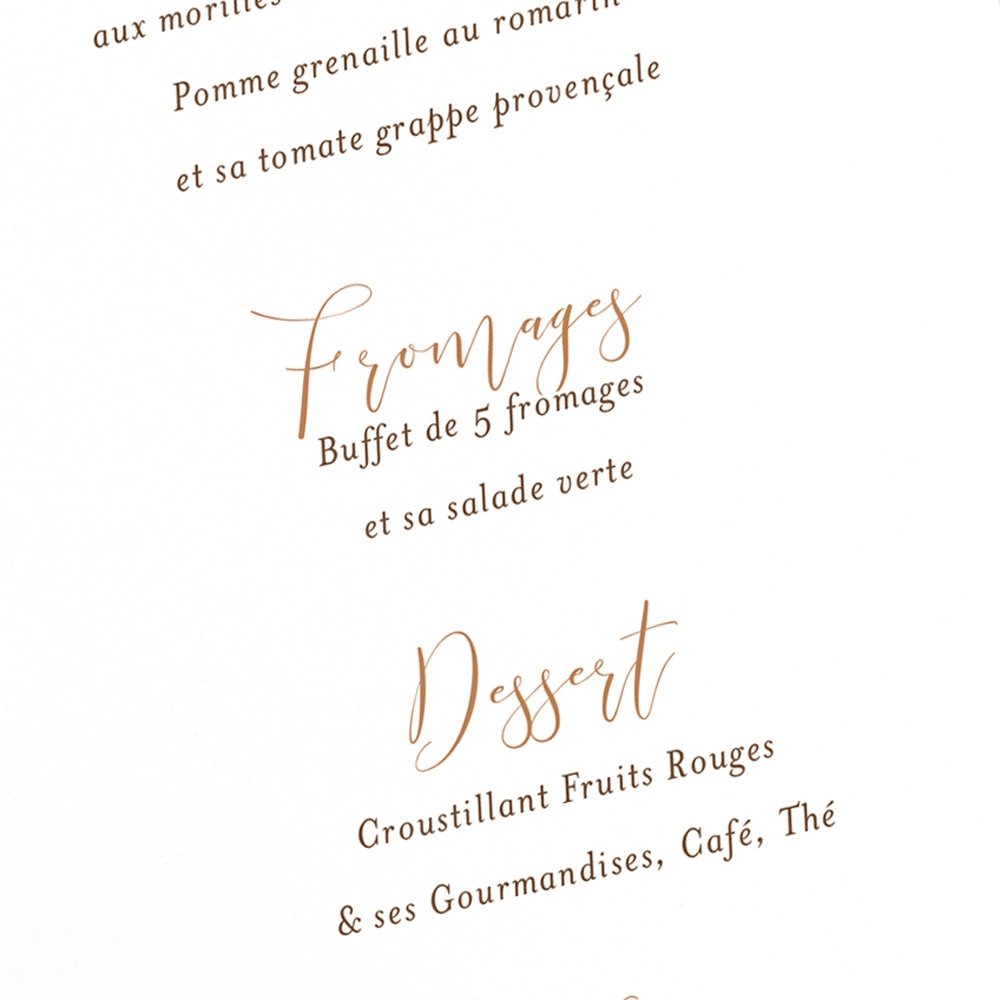 aux morilles
Pomme grenaille au romarin
et sa tomate grappe provençale
Fromages
Buffet de 5 fromages
et sa salade verte
Dessert
Croustillant Fruits Rouges
& ses Gourmandises, Café, Thé